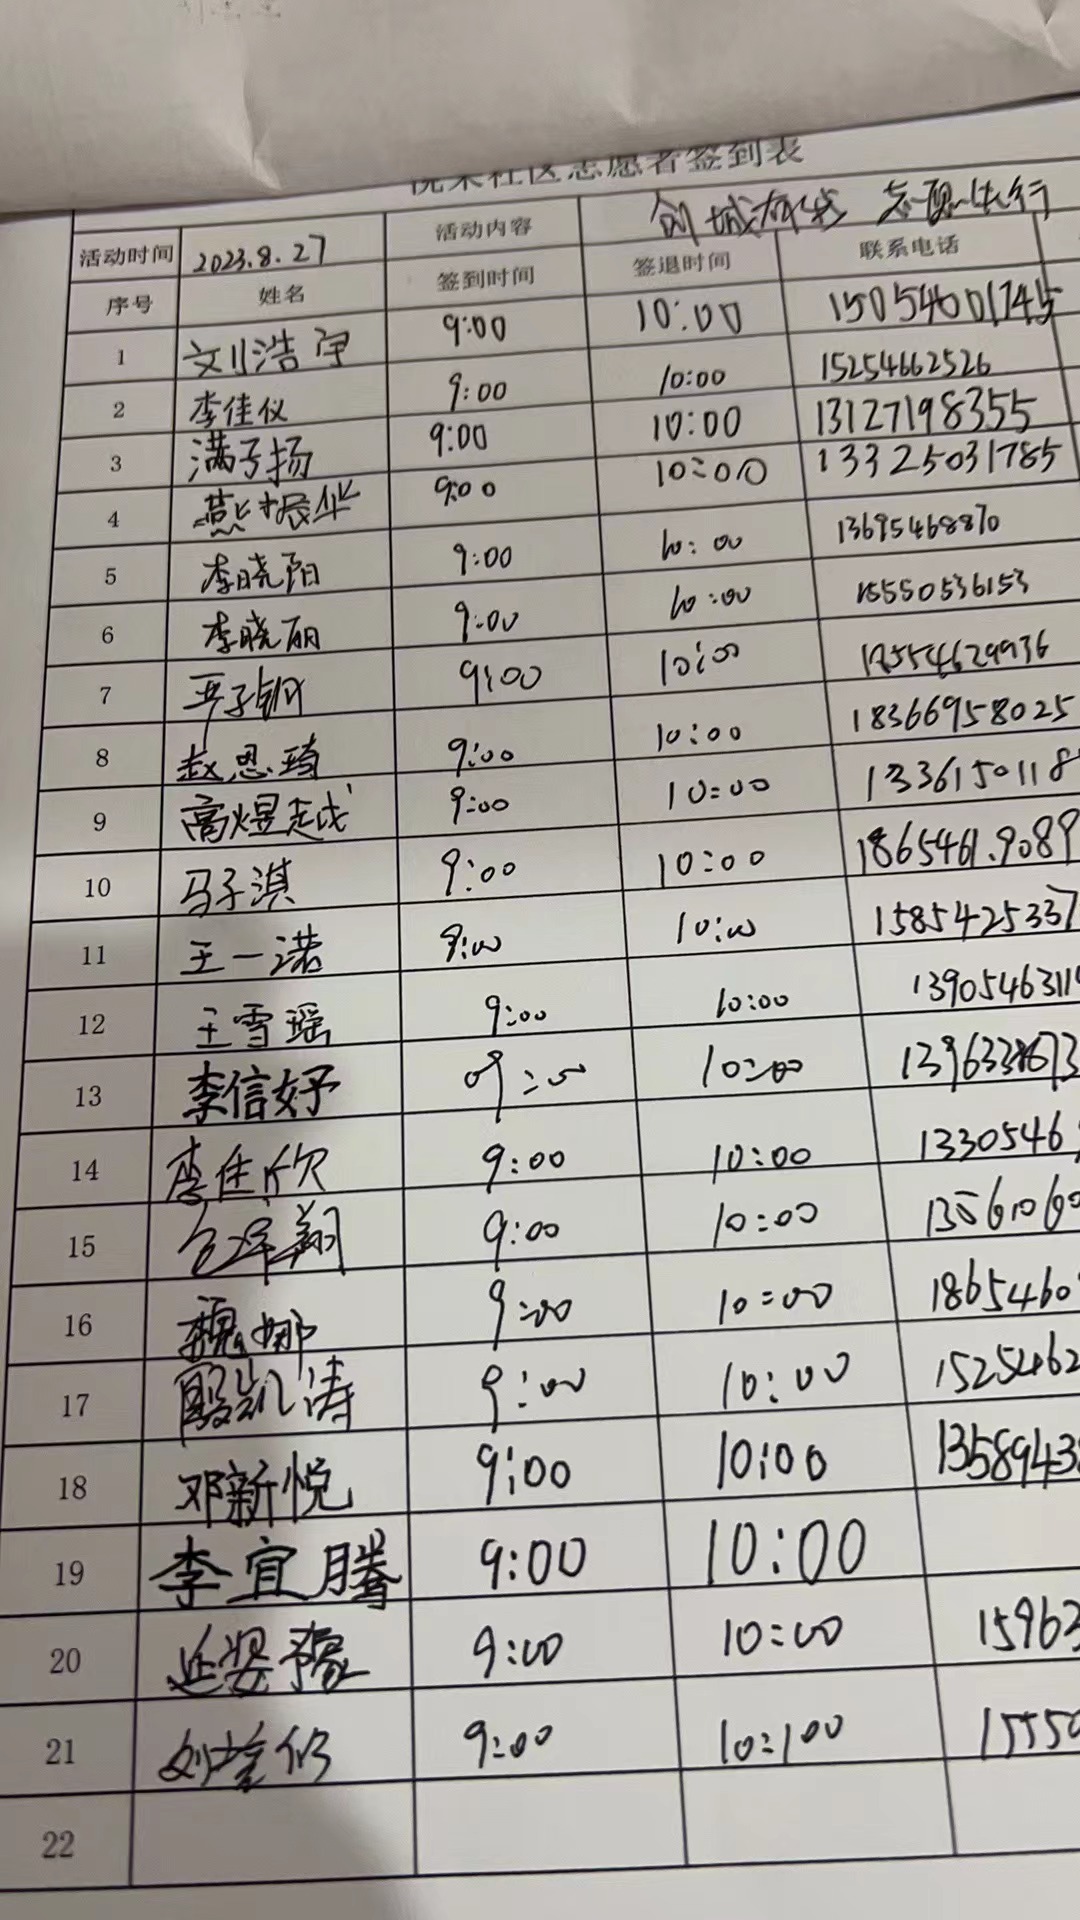 社区志愿者签到表
活动时间 2023.8.27 活动内容 创城有我 志愿先行
序号 姓名 签到时间 签退时间 联系电话
1 刘浩宇 9:00 10:00 15054001745
2 李佳仪 9:00 10:00 15254662526
3 满子扬 9:00 10:00 13127198355
4 燕振华 9:00 10:00 13325031785
5 李晓阳 9:00 10:00 13695468870
6 李晓丽 9:00 10:00 15550536153
7 9:00 10:00
8 赵恩琦 9:00 10:00 18366958025
9 高煜越 9:00 10:00 1336150118
10 马子淇 9:00 10:00 18654619089
11 王一诺 9:00 10:00 1585425337
12 王雪瑶 9:00 10:00 1390546311
13 李信好 09:00 10:00
14 李佳欣 9:00 10:00 1330546
15 9:00 10:00
16 魏娜 9:00 10:00 1865460
17 殷凯涛 9:00 10:00 15254462
18 邓新悦 9:00 10:00 13589438
19 李宜腾 9:00 10:00
20 延姿豫 9:00 10:00 15963
21 9:00 10:100 15550
22